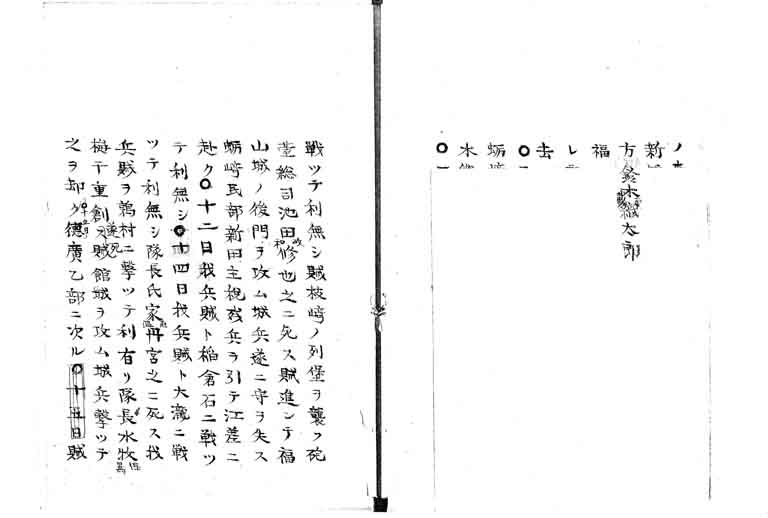 ノ
新
方鈴木織太郎
福
レ
〇去
蛎
木
〇
戰ツテ利無シ賊枝﨑ノ列堡ヲ襲フ砲
臺総司池田修也之ニ死ス賊進ンテ福
山城ノ後門ヲ攻ム城兵遂ニ守ヲ失ス
蛎﨑民部新田主税残兵ヲ引テ江差ニ
赴ク〇十二日我兵賊ト稲倉石ニ戰ツ
テ利無シ〇十四日我兵賊ト大瀧ニ戰
ツテ利無シ隊長氏家丹宮之ニ死ス我
兵賊ヲ鶉村ニ撃ツテ利有リ隊長水牧
梅干重創ス賊館城ヲ攻ム城兵撃ツテ
之ヲ却ク德廣乙部ニ次ル〇十五日賊